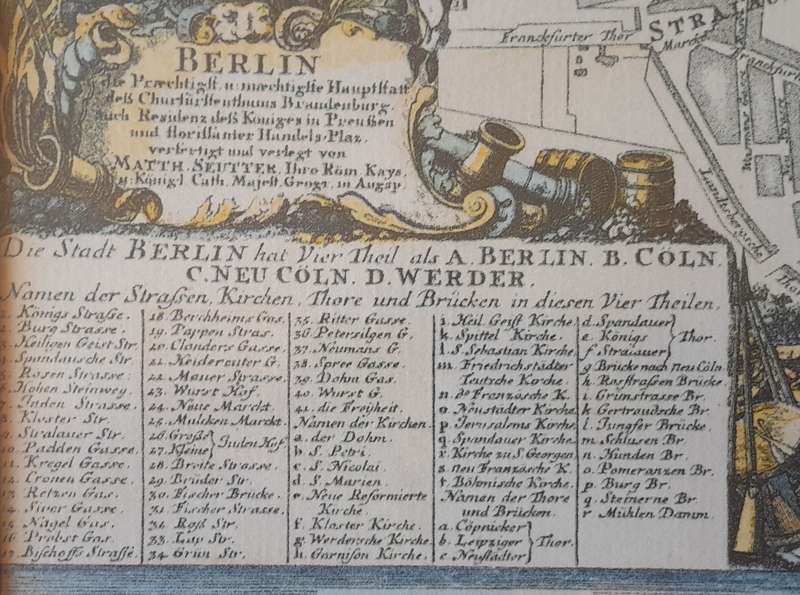 BERLIN
die Præchtigst. u. mæchtigste Hauptstatt
deß Churfürstenthums Brandenburg,
auch Residenz deß Königes in Preußen
und florissanter Handels-Plaz,
verfertigt und verlegt von
MATTH. SEUTTER, Ihro Röm. Kays.
u. Königl. Cath. Majest. Geogr. in Augsp.
Franckfurter Thor
STRALAU
Marckt
Franckfurter
Landsbergische
Die Stadt BERLIN hat Vier Theil als A. BERLIN. B. CÖLN.
C. NEU CÖLN. D. WERDER.
Namen der Strassen, Kirchen, Thore und Brücken in diesen Vier Theilen.
1. Königs Straße.
2. Burg Strasse.
3. Heiligen Geist Str.
4. Spandausche Str.
Rosen Strasse.
6. Hohen Steinwey.
7. Juden Strasse.
8. Kloster Str.
9. Stralauer Str.
10. Padden Gasse.
11. Kregel Gasse.
12. Cronen Gasse.
13. Retzen Gas.
14. Siver Gasse.
15. Nagel Gas.
16. Probst Gas.
17. Bischoffs Straße.
18. Borchheims Gas.
19. Pappen Stras.
20. Clanders Gasse.
21. Heidereuter G.
22. Mauer Strasse.
23. Wurst Hof.
24. Neue Marckt.
25. Mulcken Marckt.
26. Große
27. Kleine } Juden Hof
28. Breite Strasse.
29. Brüder Str.
30. Fischer Brücke.
31. Fischer Strasse.
32. Roß Str.
33. Lap Str.
34. Grün Str.
35. Ritter Gasse.
36. Petersilgen G.
37. Neumans G.
38. Spree Gasse.
39. Dohm Gas.
40. Wurst G.
41. die Freyheit.
Namen der Kirchen.
a. der Dohm.
b. S. Petri.
c. S. Nicolai.
d. S. Marien.
e. Neue Reformierte
Kirche.
f. Kloster Kirche.
g. Werdersche Kirche.
h. Garnison Kirche.
i. Heil Geist Kirche
k. Spittel Kirche.
l. S. Sebastian Kirche.
m. Friedrichstädter
Teutsche Kirche.
n. de Französche K.
o. Neustädter Kirche
p. Jerusalms Kirche.
q. Spandauer Kirche
r. Kirche zu S. Georgen
s. neu Französche K.
t. Böhmische Kirche.
Namen der Thore
und Brücken.
a. Cöpnicker
b. Leipziger } Thor.
c. Neustädter
d. Spandauer
e. Königs } Thor.
f. Stralauer
g. Brücke nach Neu Cöln.
h. Rosstrassen Brücke.
i. Grünstrasse Br.
k. Gertraudsche Br.
l. Jungfer Brücke.
m. Schlusen Br.
n. Hunden Br.
o. Pomeranzen Br.
p. Burg Br.
q. Steinerne Br.
r. Mühlen Damm.